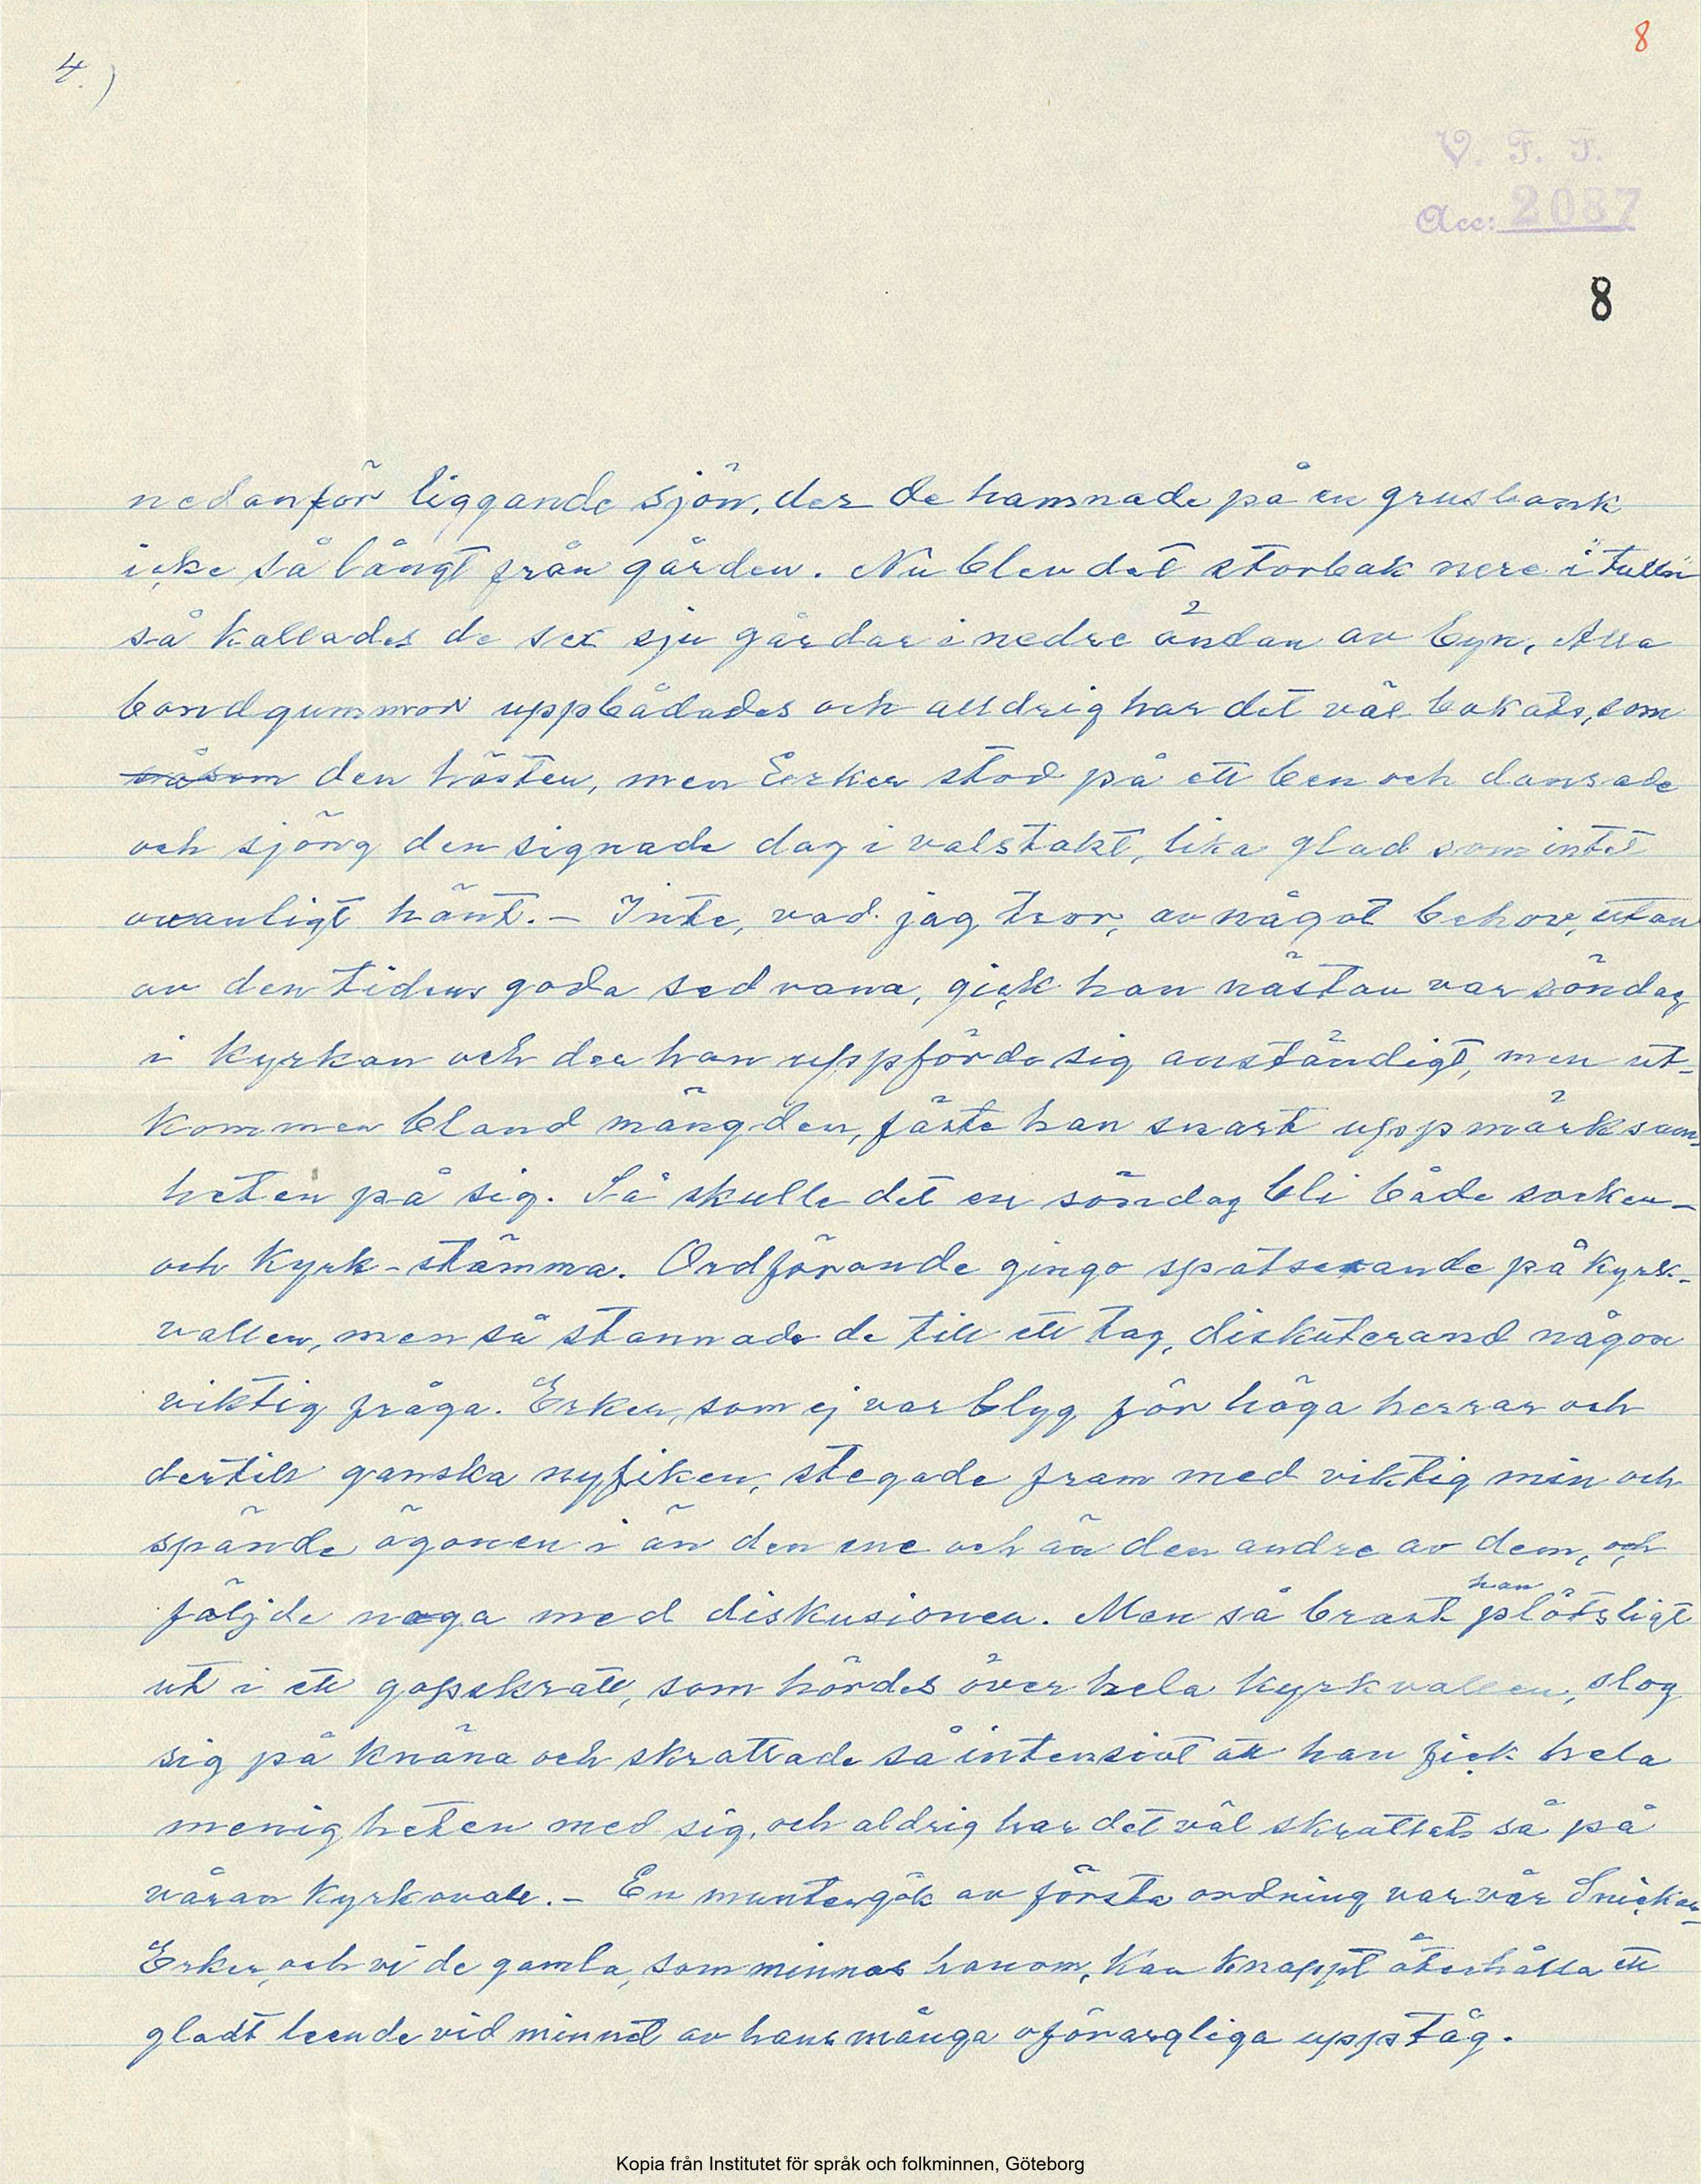 8
4.)
V. F. F.
Acc: 2087
8
nedanför liggande sjön, der de hamnade på en grusbank
icke så långt från gården. Nu blev det storbak nere i "
så kallades de sex sju gårdar i nedre ändan av byn, Alla
bondgummor uppbådades och alldrig har det väl bakats, som
såsom den hösten, men Erker stod på ett ben och dansade
och sjöng den signade dag i valstakt, lika glad som intet
ovanligt hänt. – Inte, vad jag tror, av något behov, utan
av den tidens goda sedvana, gick han nästan var söndag
i kyrkan och der han uppförde sig anständigt, men ut-
kommen bland mängden, fäste han snart uppmärksam-
heten på sig. Så skulle det en söndag bli både socken-
och Kyrk-stämma. Ordförande gingo spatserande på kyrk-
vallen, men så stannade de till ett tag, diskuterand någon
viktig fråga. Erker, som ej var blyg för höga herrar och
dertill ganska nyfiken, stegade fram med viktig min och
spände ögonen i än den ene och än den andre av dem, och
följde noga med diskusionen. Men så brast han plötsligt
ut i ett gapskratt, som hördes över hela kyrkvallen, slog
sig på knäna och skrattade så intensivt att han fick hela
menigheten med sig, och aldrig har det väl skrattats så på
våran Kyrkovall. – En muntergök av första ordning var vår Snickar-
Erker, och vi de gamla, som minnas honom, kan knappt återhålla ett
gladt leende vid minnet av hans många oförargliga upptåg.
Kopia från Institutet för språk och folkminnen, Göteborg